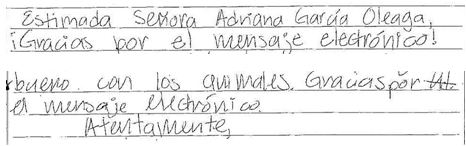 Estimada Señora Adriana García Oleaga,
¡Gracias por el mensaje electrónico!
bueno con los animales. Gracias por
el mensaje electrónico
Atentamente,